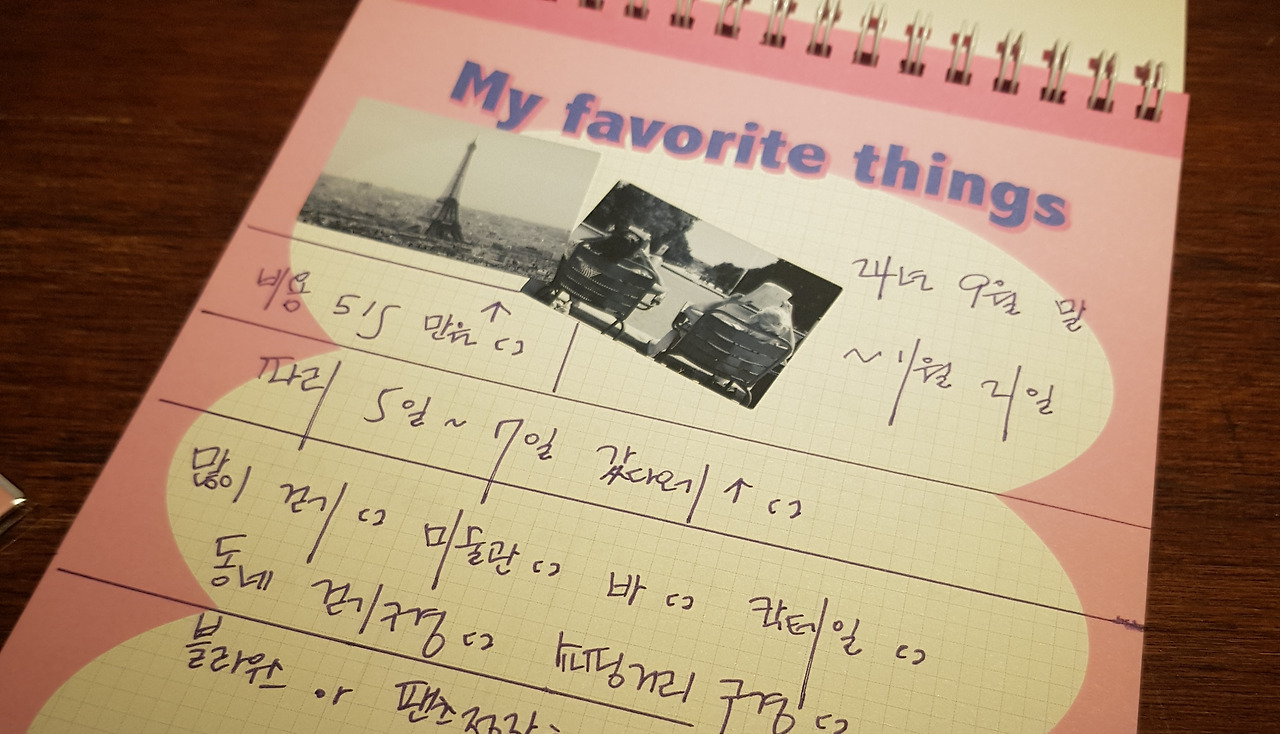 My favorite things
24년 9월 말
~ 1월 2일
비용 515 만원↑ ㄷㄱ
파리 5일 ~ 7일 갔다오기 ↑ ㄷㄱ
많이 걷기 ㄷㄱ 미술관 ㄷㄱ 바 ㄷㄱ 칵테일 ㄷㄱ
동네 걷기/구경 ㄷㄱ 쇼핑거리 구경 ㄷㄱ
블라우스 or 팬츠정장